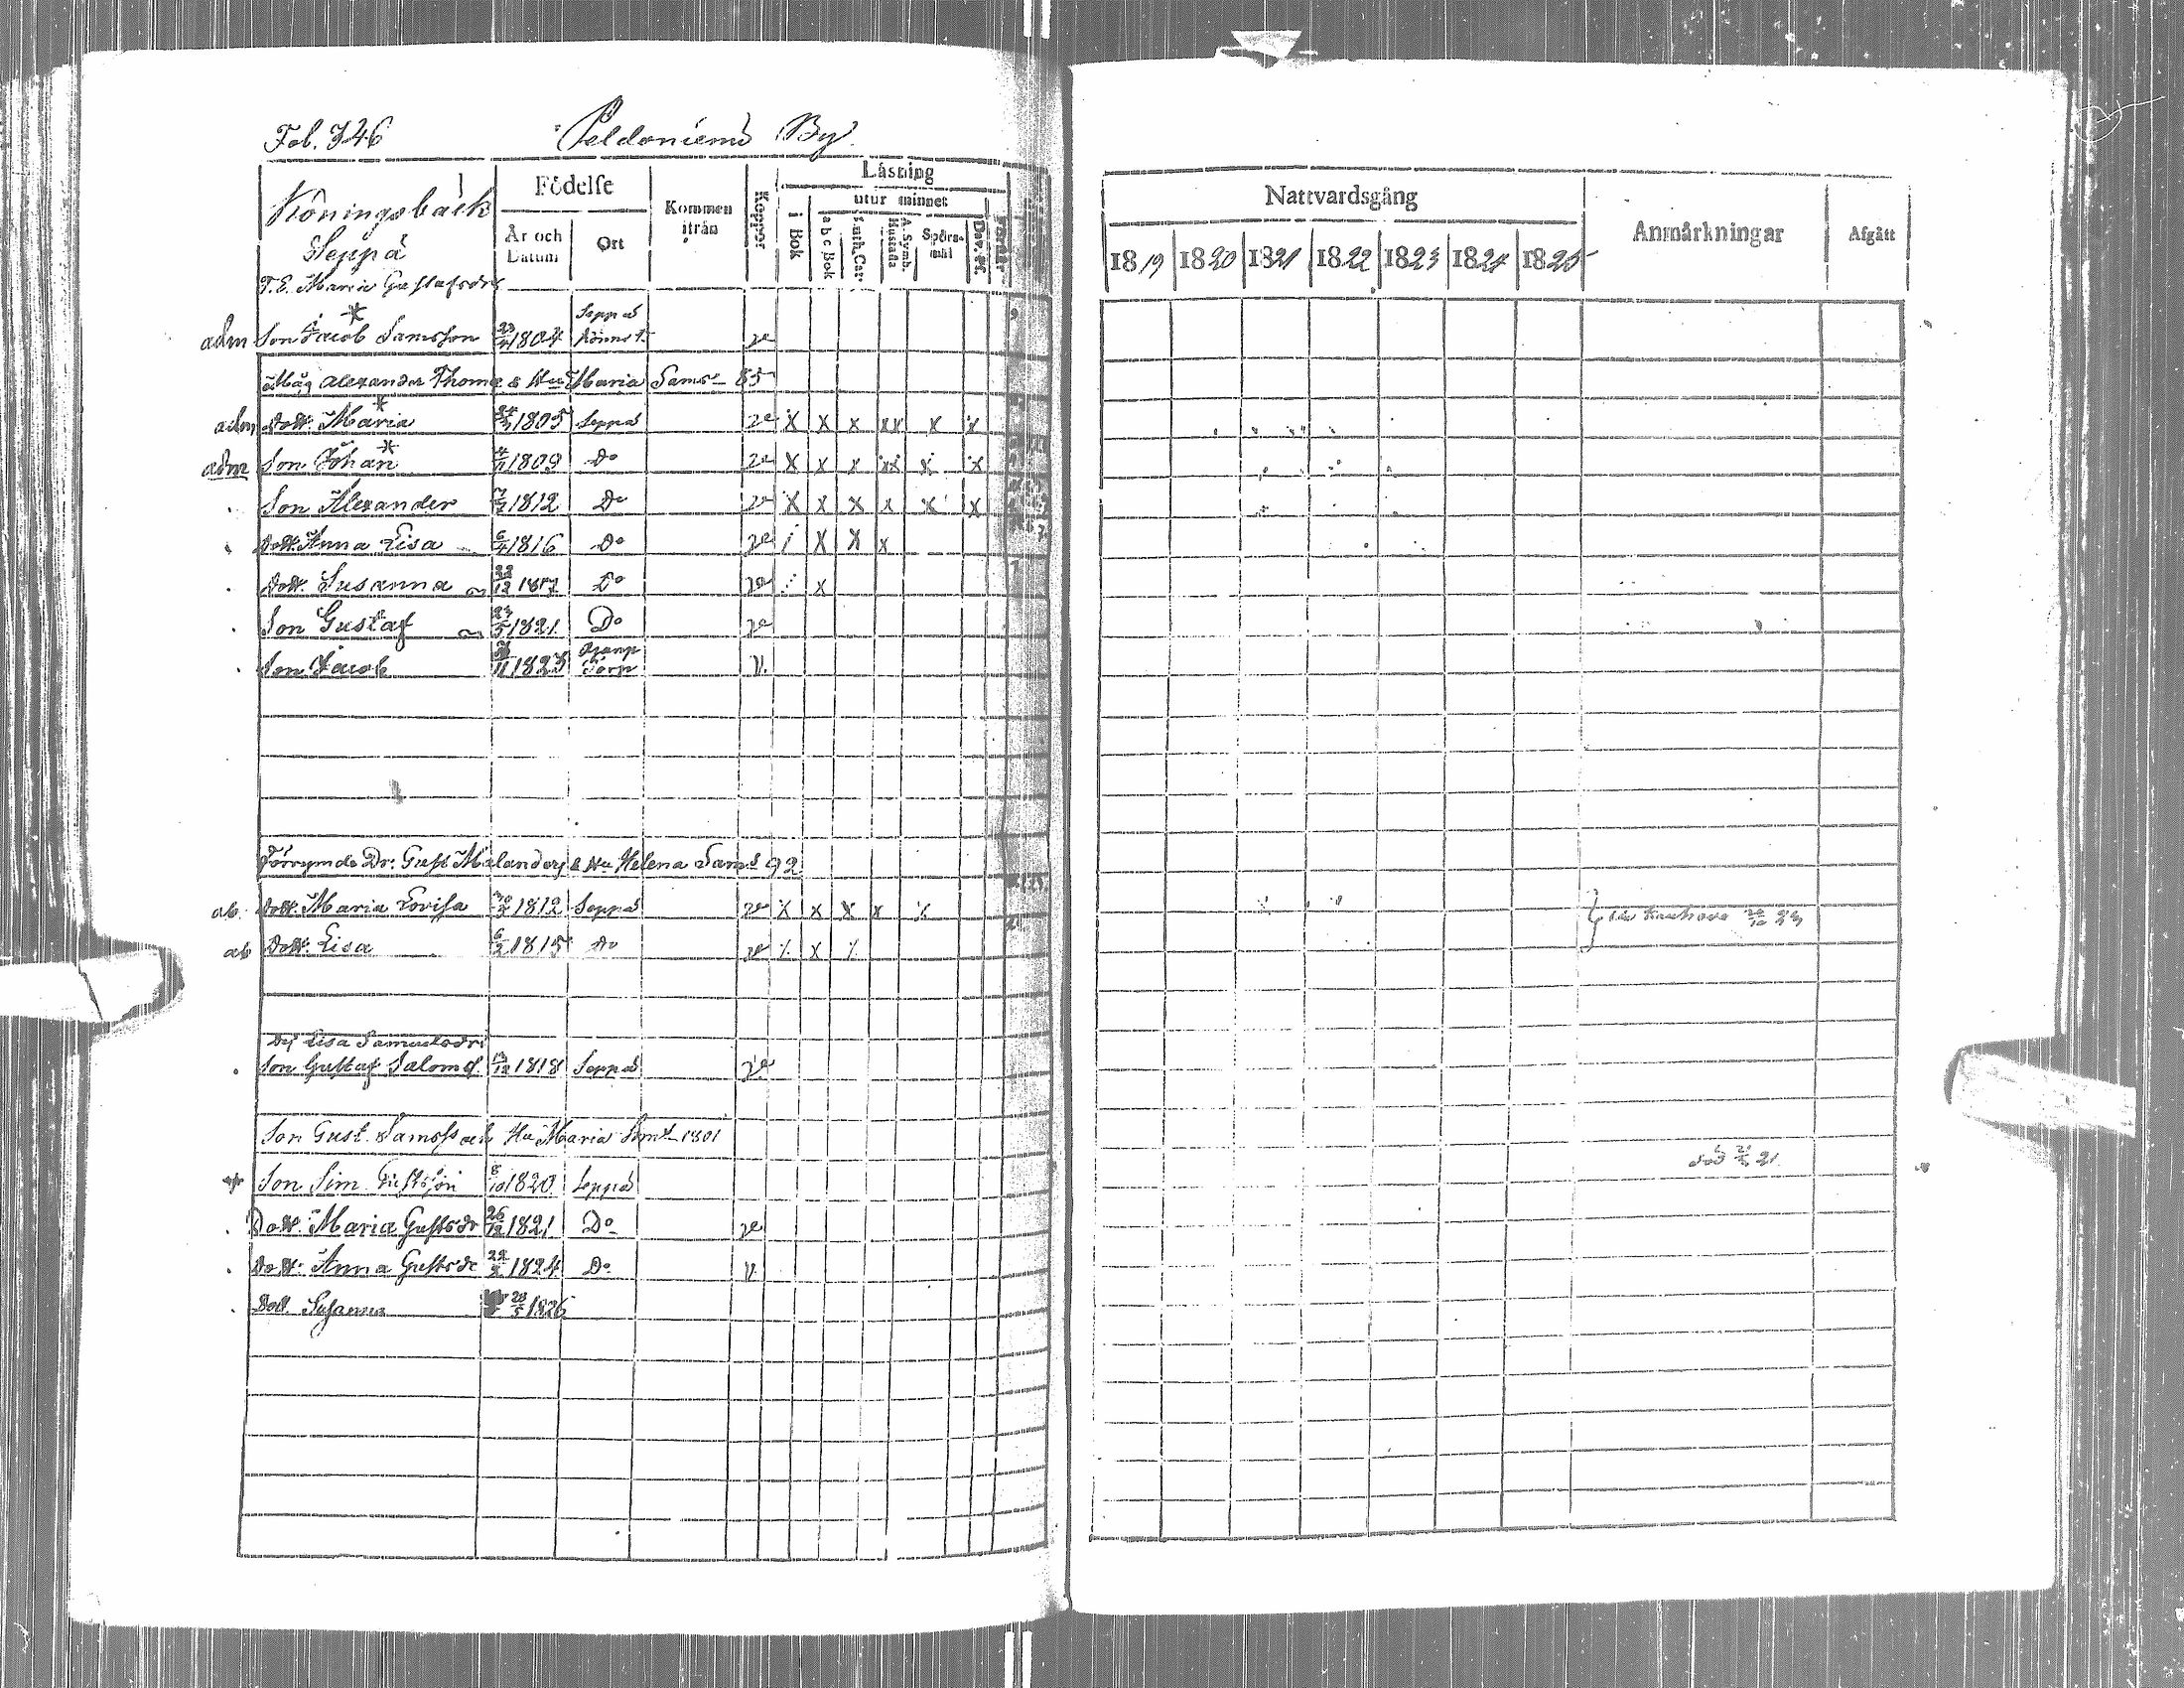 Fol. 346 Peldoniemi By
Köningsbäck
Seppä
T.E. Maria Gustafsdr
Födelse
År och Datum
Ort
Kommen ifrån
Koppor
Läsning
i Bok
utur minnet
a b c Bok
Luth. Cat:
A. Symb. Hustafla
Spörs-mål
Dav. Ps.
adm Son Jacob Samsson 23/4 1804 Seppä
Måg Alexander Thomæ & Hu Maria Sams- 85
adm Dott. Maria 1805 Seppä ve x x x xx x x
adm Son Johan 1809 Do ve x x x xx x x
Son Alexander 1812 Do ve x x x x x x
Dott. Anna Lisa 6/4 1816 Do ve x x x
Dott. Susanna 22/12 1817 Do ve x
Son Gustaf 23/5 1821 Do ve
Son Jacob 1823 Torp v.
Förrymde Dr. Gust Melanders & Hu Helena Sams 92
ab. Dott. Maria Lovisa 1812 Seppä ve x x x x
ab Dott. Lisa 6/2 1815 Do ve x
Dej Lisa Samuelsdr
Son Gustaf Saloms. 1818 Seppä ve
Son Gust. Samss och Hu Maria Sims 1801
Son Sim. Gustsson 8/10 1820 Seppä
Dott. Maria Gustsdr 26/12 1821 Do ve
Dott. Anna Gustsdr 22/2 1824 Do v.
Dott. Susanna 28/5 1826
Nattvardsgång
1819 1820 1821 1822 1823 1824 1825
Anmärkningar
Afgått
till Kauhava 23
död 21